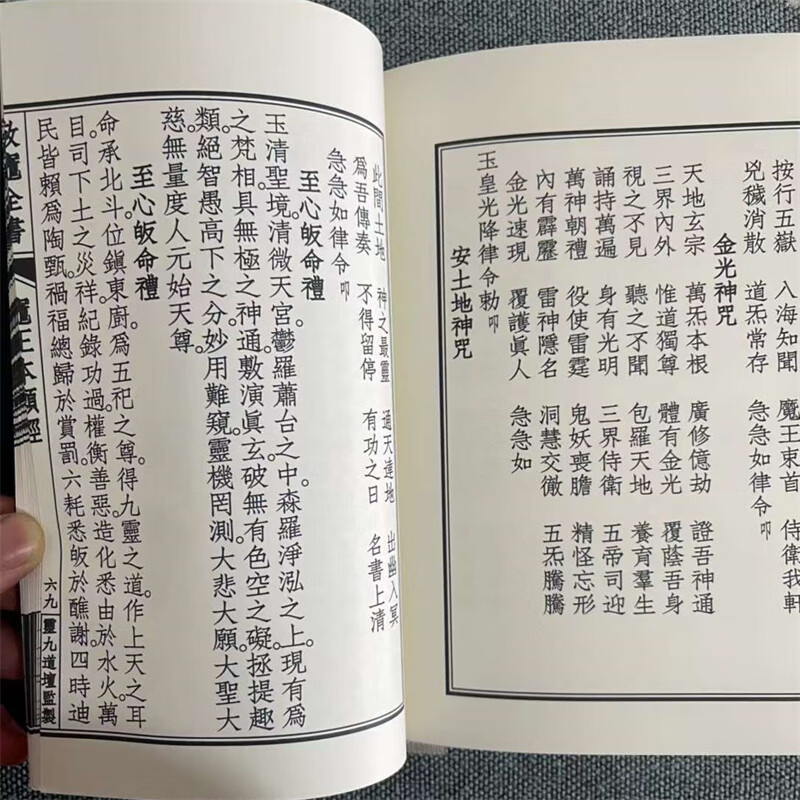 按行五嶽　入海知聞　魔王束首　侍衛我軒
兇穢消散　道炁常存　急急如律令㕥
金光神咒
天地玄宗　萬炁本根　廣修億劫　證吾神通
三界內外　惟道獨尊　體有金光　覆蔭吾身
視之不見　聽之不聞　包羅天地　養育羣生
誦持萬遍　身有光明　三界侍衛　五帝司迎
萬神朝禮　役使雷霆　鬼妖喪膽　精怪忘形
內有霹靂　雷神隱名　洞慧交徹　五炁騰騰
金光速現　覆護眞人　急急如
玉皇光降律令勅㕥
安土地神咒
此間土地　神之最靈　通天達地　出幽入冥
爲吾傳奏　不得留停　有功之日　名書上清
急急如律令㕥
至心皈命禮
玉清聖境。清微天宮。鬱羅蕭台之中。森羅淨泓之上。現有爲
之梵相。具無極之神通。敷演眞玄。破無有色空之礙。拯提趣
類。絕智愚高下之分。妙用難窺。靈機罔測。大悲大願。大聖大
慈。無量度人。元始天尊。
至心皈命禮
命承北斗。位鎭東廚。爲五祀之尊。得九靈之道。作上天之耳
目。司下土之災祥。紀錄功過。權衡善惡。造化悉由於水火。萬
民皆賴爲陶甄。禍福總歸於賞罰。六耗悉皈於醮謝。四時迪
全書
魔王本願經
六九
靈九道壇監製